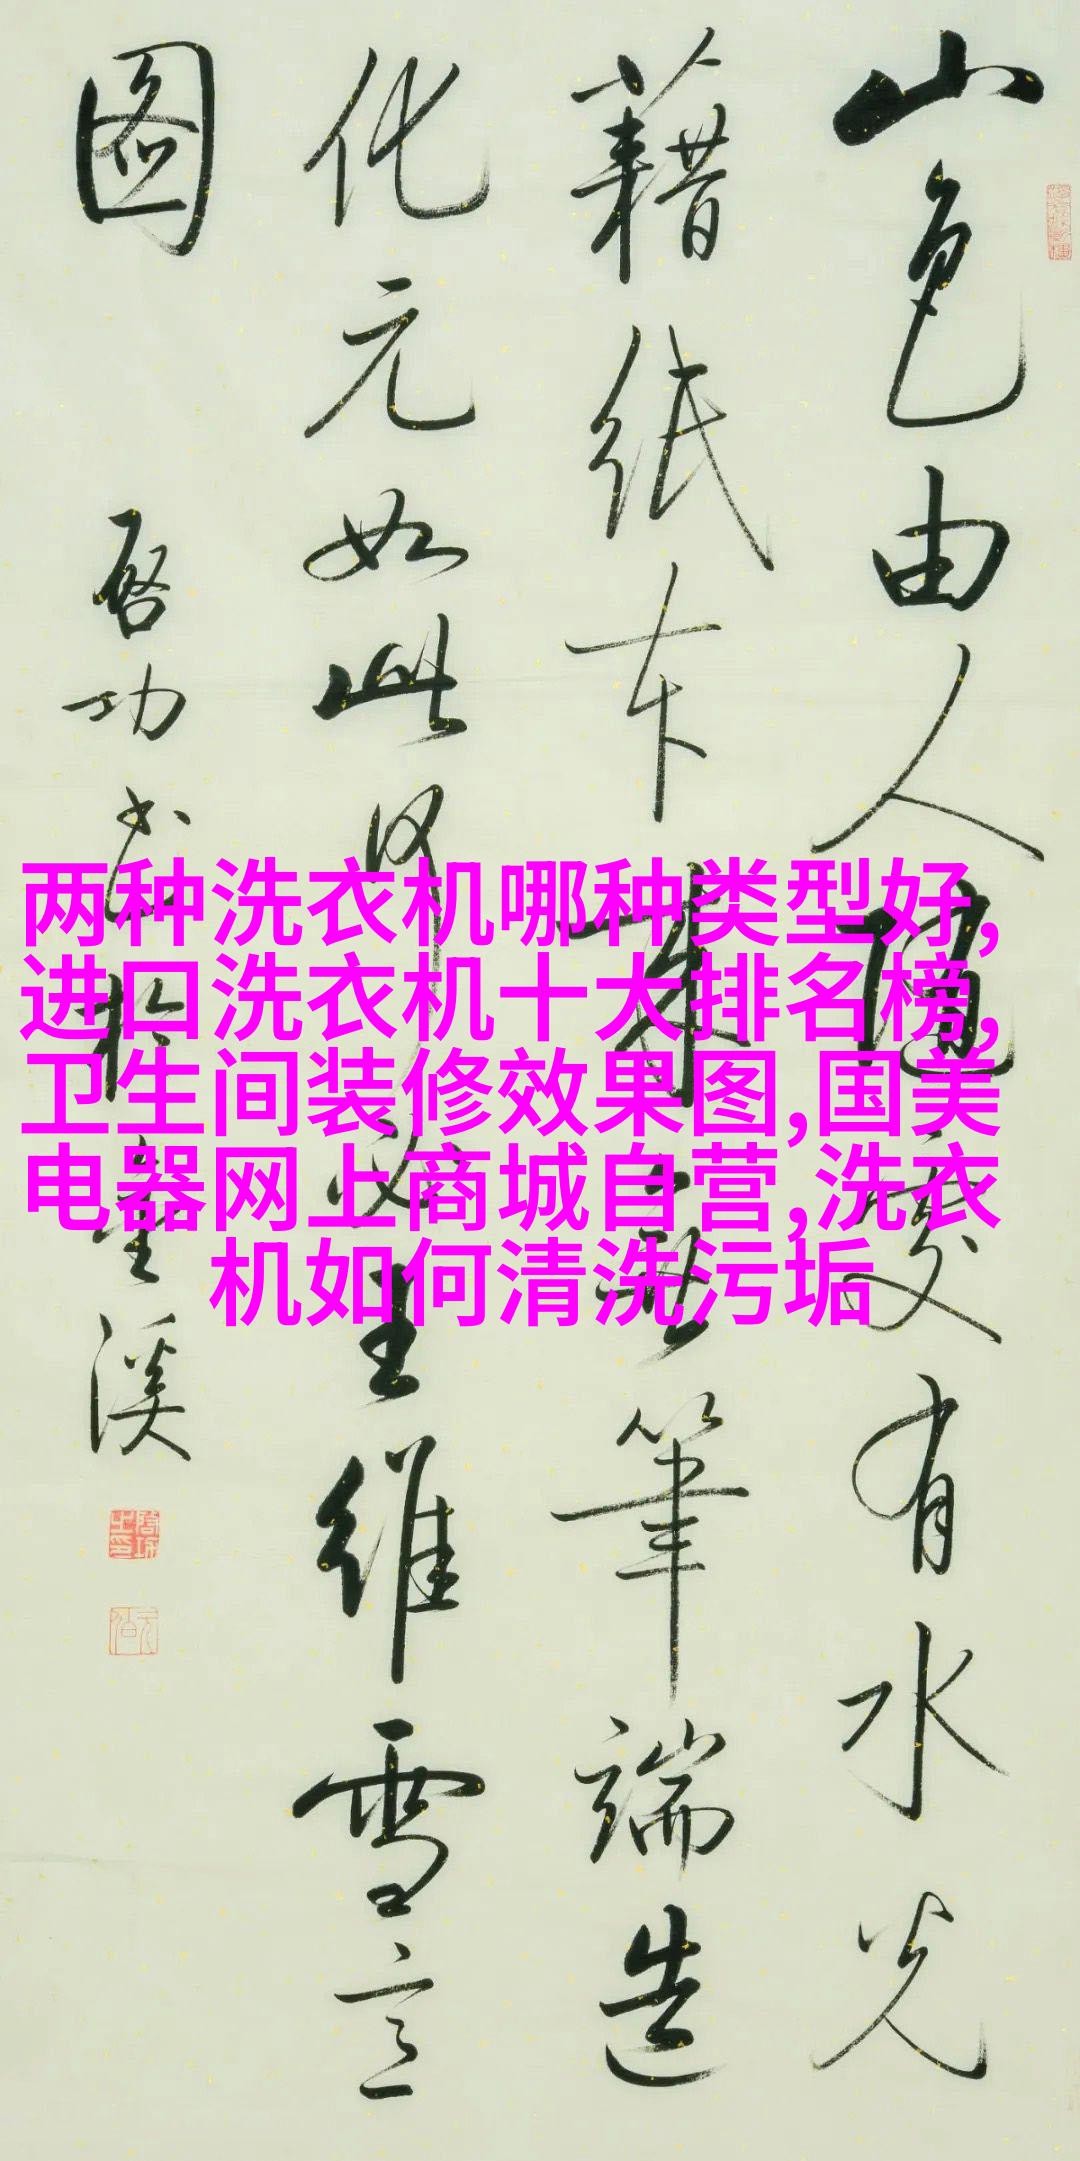 山色由人隨處有水光
藉紙本來無筆端造
化元如此何必王維雪意
圖
啓功書於童溪
两种洗衣机哪种类型好,
进口洗衣机十大排名榜,
卫生间装修效果图,国美
电器网上商城自营,洗衣
机如何清洗污垢